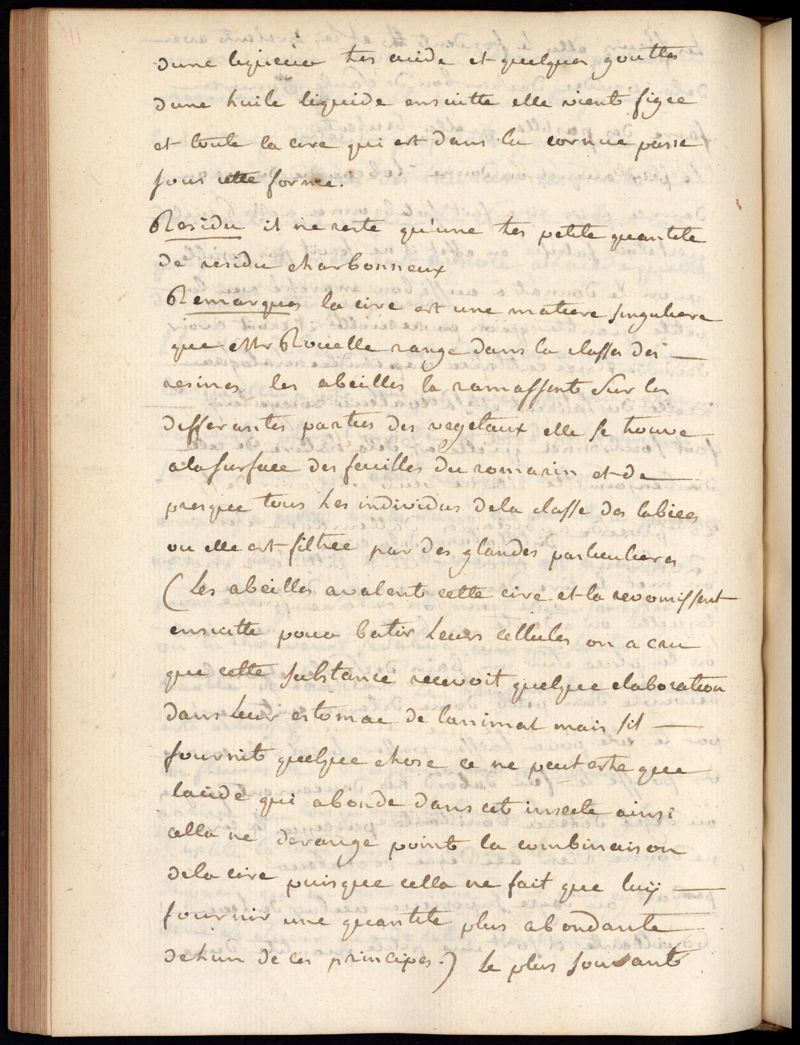 dune liqueur tres acide et quelques gouttes
dune huile liquide ensuitte elle vient figée
et toute la cire qui est dans la cornue passe
sous cette forme.
Residu il ne reste qu'une tres petite quantite
de residu charbonneux
Remarques la cire est une matiere singuliere
que Mr Rouelle range dans la classe des —
resines les abeilles la ramassent sur les
differantes parties des vegetaux elle se trouve
a la surface des feuilles du romarin et de —
presque tous les individus dela classe des labiées
ou elle est filtrée par des glandes particulieres
(Les abeilles avalent cette cire et la revomissent
ensuitte pour batir leurs cellules on a cru
que cette substance recevoit quelque elaboration
dans leur estomac de lanimal mais sil —
fournit quelque chose ce ne peut estre que
lacide qui abonde dans cet insecte ainsi
cella ne derange point la combinaison
dela cire puisque cella ne fait que luÿ —
fournir une quantite plus abondante
de lun de ces principes.) le plus souvant